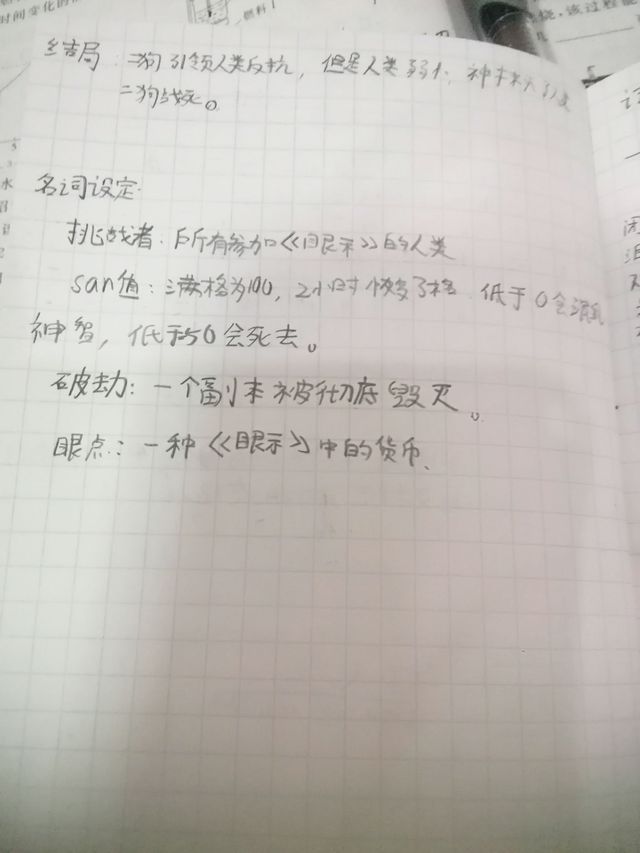 时间变化的
燃料
烧,该过程能
结局:二狗引领人类反抗,但是人类弱小,神
二狗战死。
名词设定:
挑战者:所有参加《眼示》的人类
san值:满格为100,2小时恢复 格 低于0会混乱
神智,低于 0会死去。
破劫:一个副本被彻底毁灭。
眼点:一种《眼示》中的货币、
水